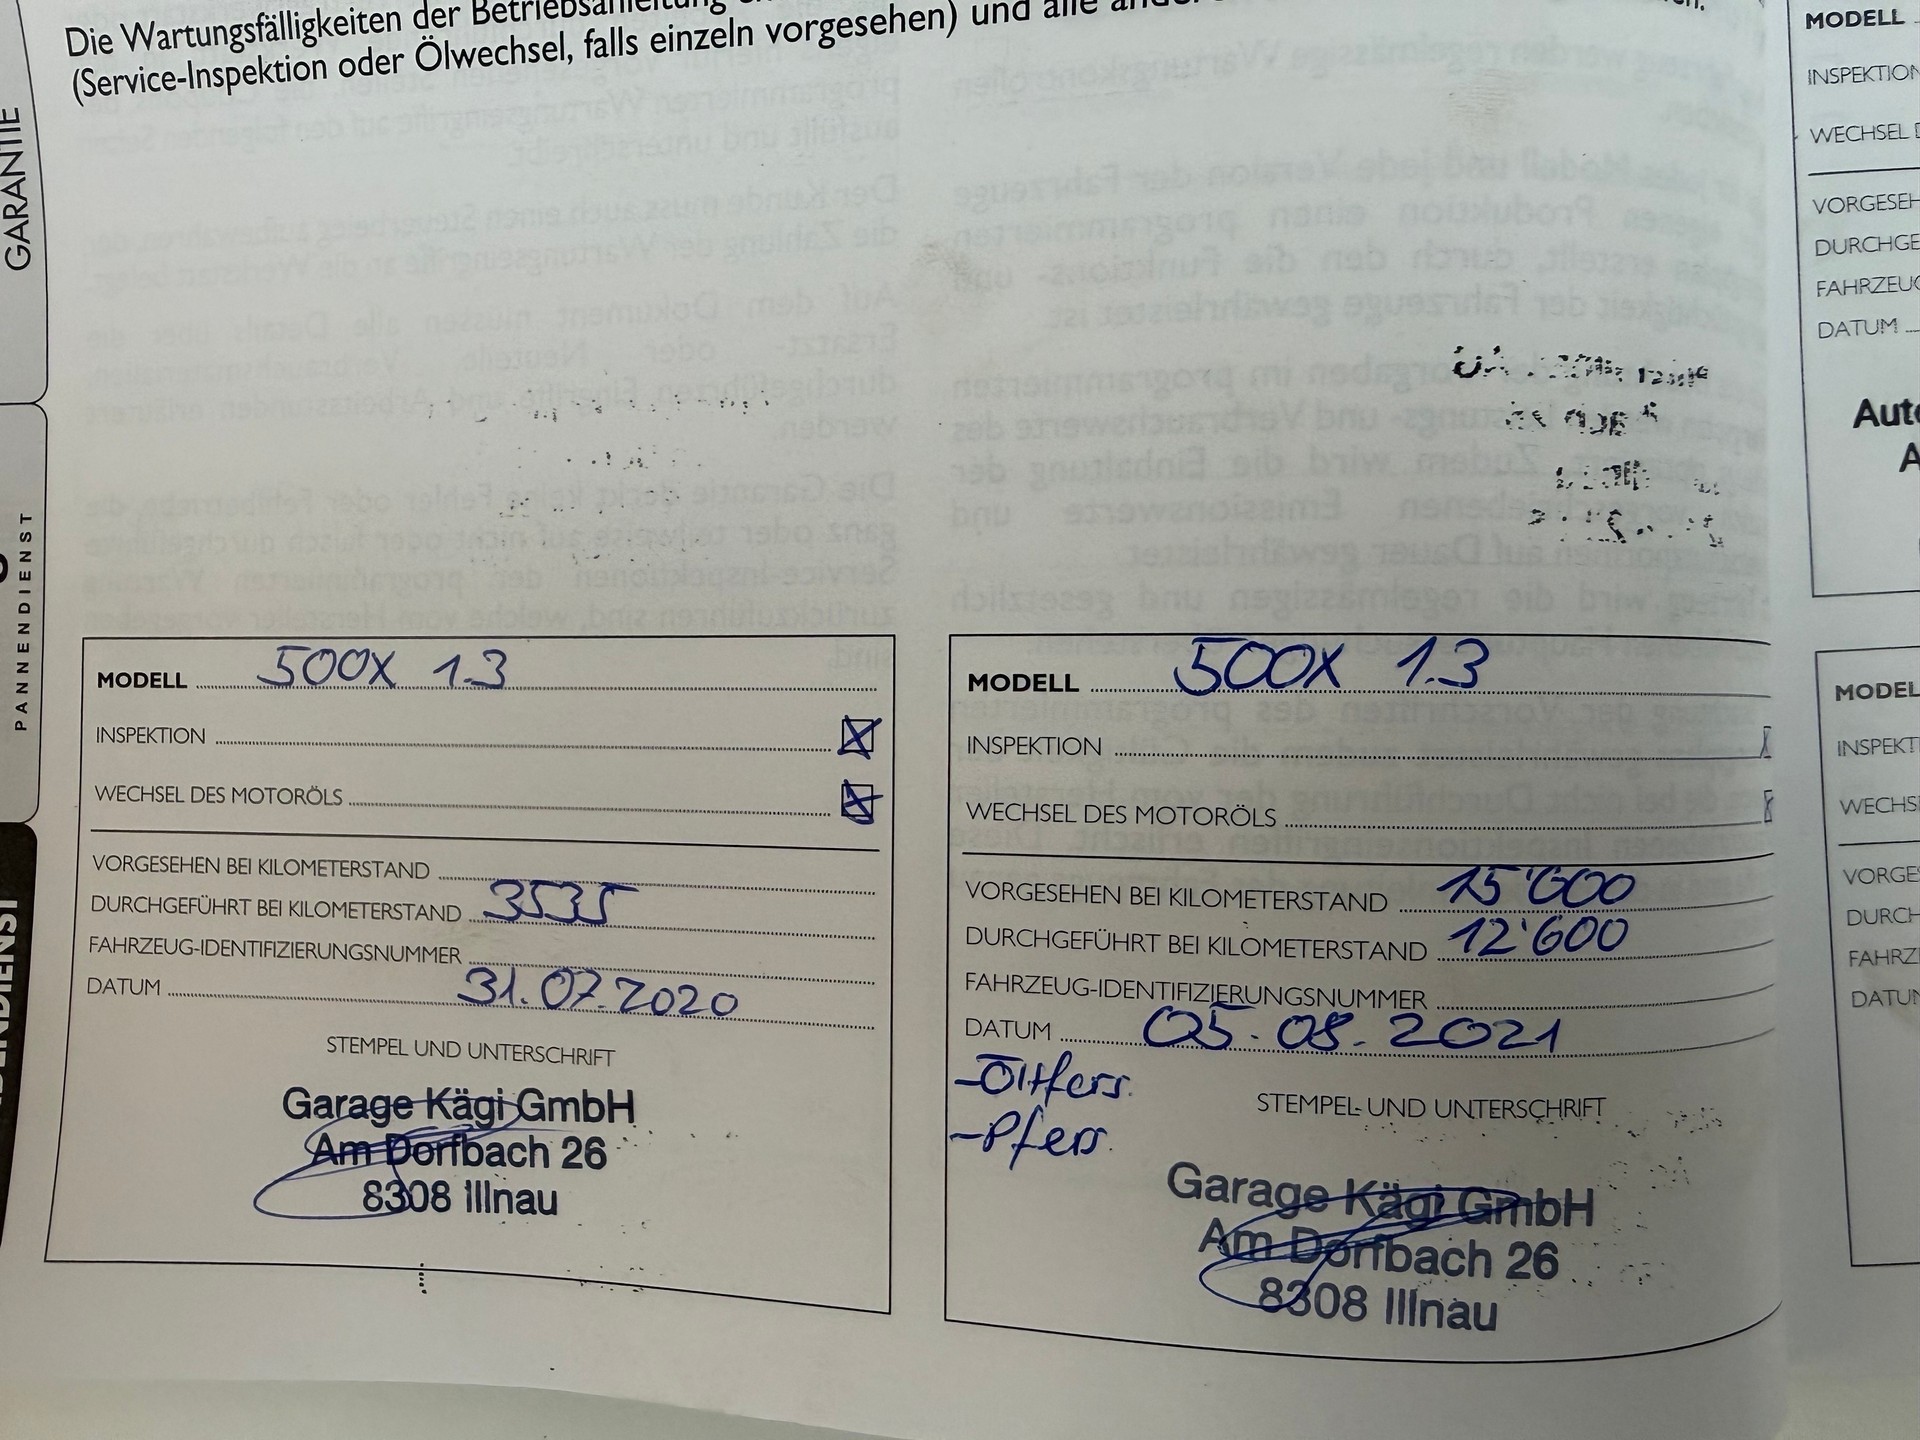 Die Wartungsfälligkeiten der Betriebsanleitung
(Service-Inspektion oder Ölwechsel, falls einzeln vorgesehen) und alle
GARANTIE
PANNENDIENST
MODELL 500X 1.3
INSPEKTION
WECHSEL DES MOTORÖLS
VORGESEHEN BEI KILOMETERSTAND
DURCHGEFÜHRT BEI KILOMETERSTAND 3535
FAHRZEUG-IDENTIFIZIERUNGSNUMMER
DATUM 31.07.2020
STEMPEL UND UNTERSCHRIFT
Garage Kägi GmbH
Am Dorfbach 26
8308 Illnau
MODELL 500X 1.3
INSPEKTION
WECHSEL DES MOTORÖLS
VORGESEHEN BEI KILOMETERSTAND 15'000
DURCHGEFÜHRT BEI KILOMETERSTAND 12'600
FAHRZEUG-IDENTIFIZIERUNGSNUMMER
DATUM 05.08.2021
STEMPEL UND UNTERSCHRIFT
Garage Kägi GmbH
Am Dorfbach 26
8308 Illnau
MODELL
INSPEKTION
WECHSEL
VORGESEH
DURCHGE
FAHRZEUG
DATUM
Auto
MODEL
INSPEKTI
WECHS
VORGE
DURCH
FAHRZ
DATUM